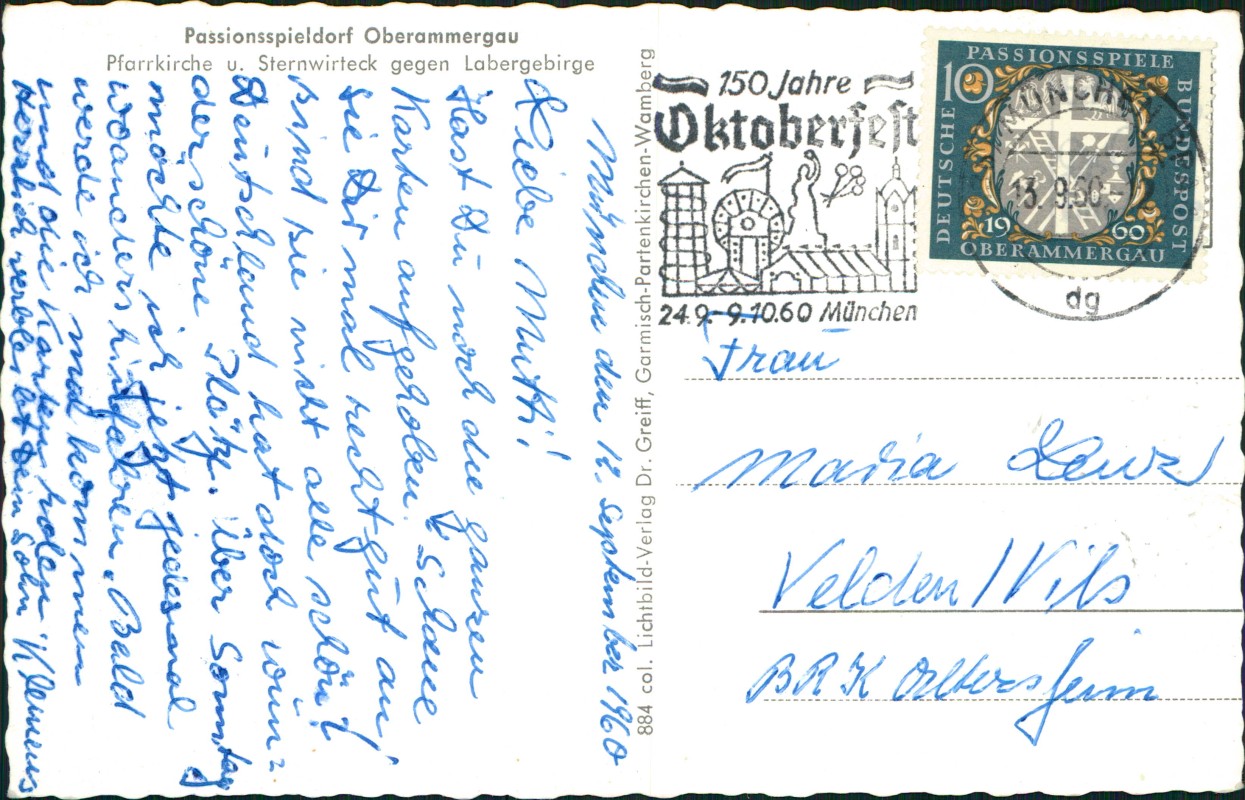 Passionsspieldorf Oberammergau
Pfarrkirche u. Sternwirteck gegen Labergebirge
München den 12. September 1960
Liebe Mutti!
Hast Du noch die ganzen
Karten aufgehoben. Schaue
sie Dir mal recht gut an!
Sind sie nicht alle schön?
Deutschland hat doch wun=
derschöne Plätze. Über Sonntag
möchte ich jetzt jedesmal
woanders hinfahren. Bald
werde ich mal kommen
und die Karten holen
Herzlich verbleibt Dein Sohn Klemens
884 col. Lichtbild-Verlag Dr. Greiff, Garmisch-Partenkirchen-Wamberg
150 Jahre
Oktoberfest
24.9.-9.10.60 München
PASSIONSSPIELE
10
DEUTSCHE
BUNDESPOST
1960
OBERAMMERGAU
MÜNCHEN
13.9.60
dg
Frau
Maria Lenz
Velden/Vils
BRK Altersheim